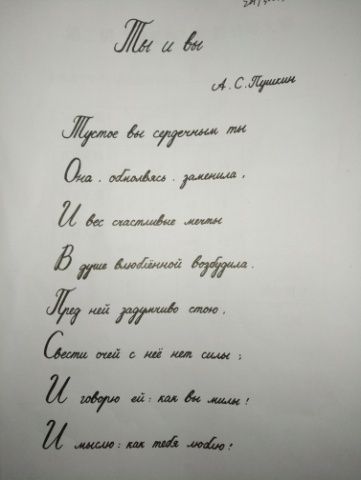 Ты и вы
А.С.Пушкин
Тустое вы сердечным ты
Она. обмолвясь. заменила,
И вес счастливые мечты
В душе влюблённой возбудила.
Пред ней задумчиво стою,
Свести очей с неё нет силы;
И говорю ей: как вы милы!
И мыслю: как тебя люблю!